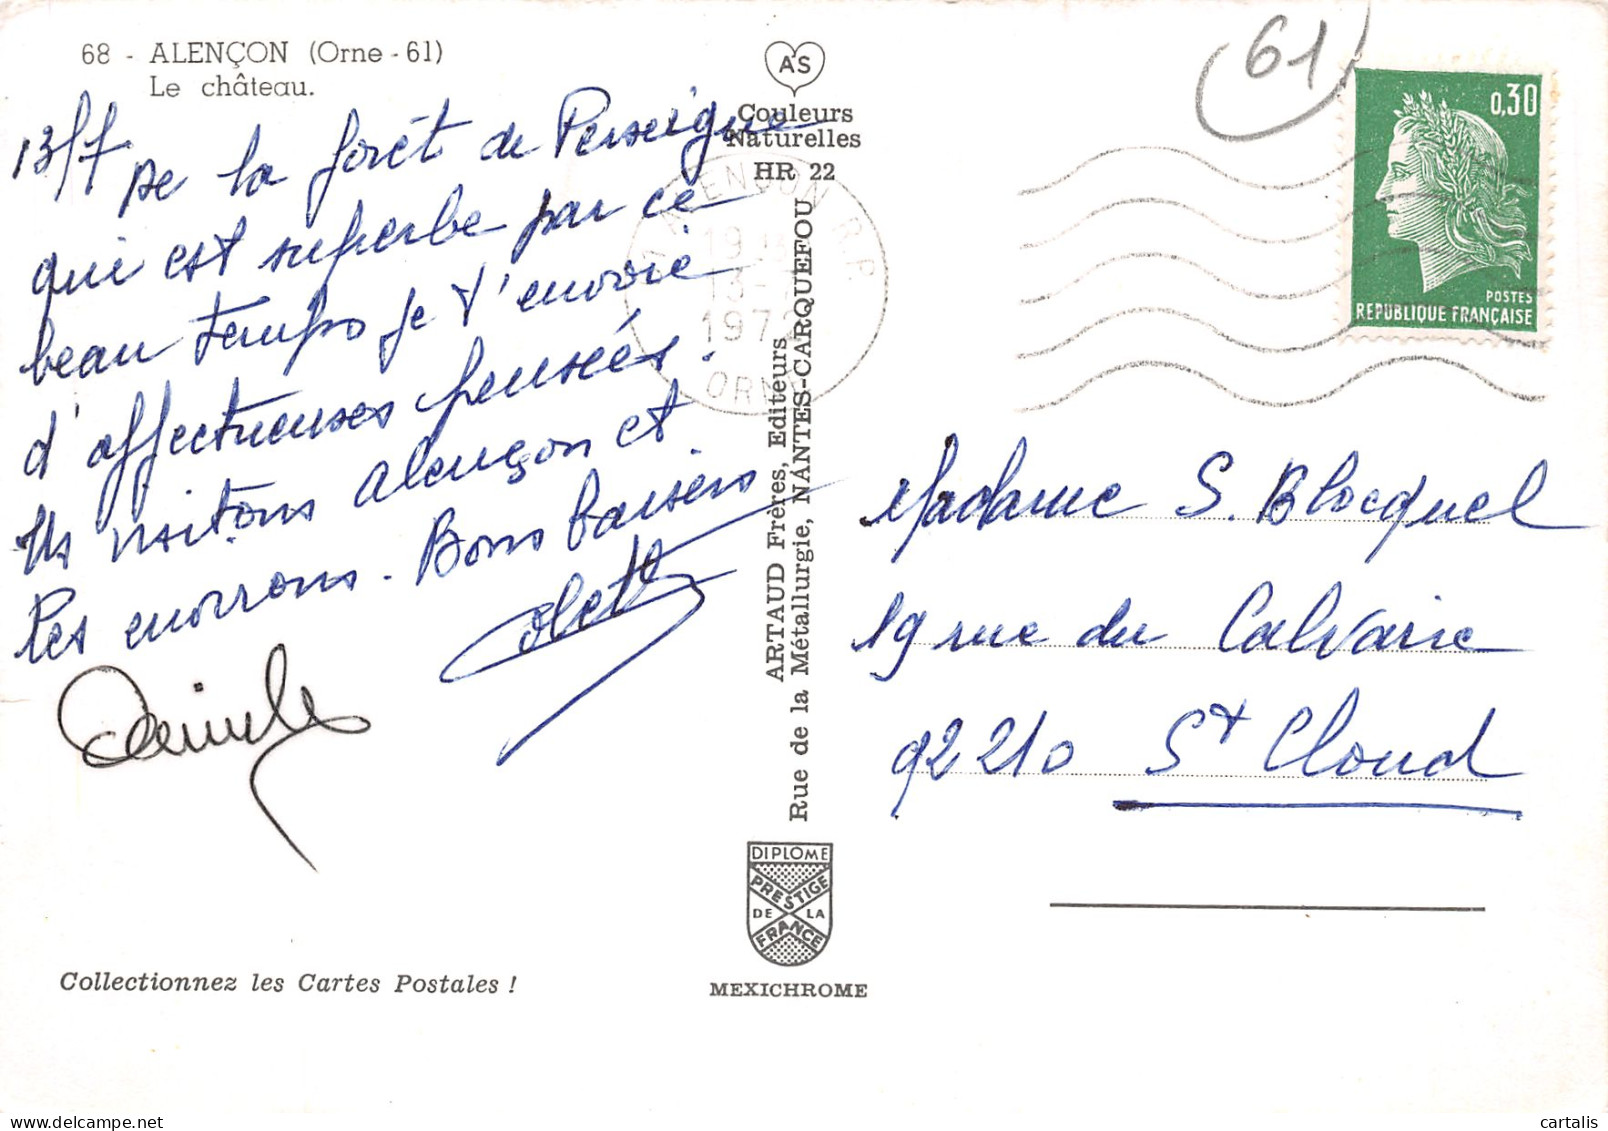 68 - ALENÇON (Orne - 61)
Le château.
13/7 De la forêt de Perseigne
qui est superbe par ce
beau temps je t'envoie
d'affectueuses pensées.
Ns visitons Alençon et
les environs. Bons baisers
Colette
AS
Couleurs
Naturelles
HR 22
ALENÇON R.P.
19 H
13-7
197
ORNE
ARTAUD Frères, Editeurs
Rue de la Métallurgie, NANTES-CARQUEFOU
DIPLOME
PRESTIGE
DE LA
FRANCE
MEXICHROME
Collectionnez les Cartes Postales !
61
0,30
POSTES
REPUBLIQUE FRANÇAISE
Madame S. Blocquel
19 rue du Calvaire
92210 St Cloud
cartalis